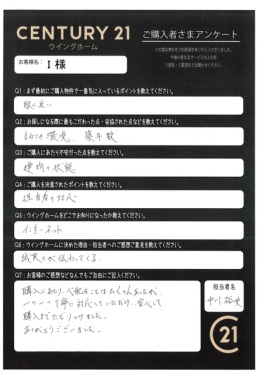 CENTURY 21
ウイングホーム
ご購入者さまアンケート
お客様名： I 様
Q1：まず最初にご購入物件で一番気に入っているポイントを教えてください。
駅に近い
Q2：お探しになる際に最もこだわった点・妥協された点などを教えてください。
まわりの環境、築年数
Q3：ご購入にあたり不安だった点を教えてください。
建物の状態
Q4：ご購入を決意されたポイントを教えてください。
担当者の対応
Q5：ウイングホームをどこでお知りになったか教えてください。
インターネット
Q6：ウイングホームに決めた理由・担当者へのご感想ご意見を教えてください。
誠実さが伝わってくる。
Q7：お客様のご感想などなんでもご自由にご記入ください。
購入にあたり、心配なことはたくさんあったが、
一つ一つ丁寧に対応していただけ、安心して
購入までたどりつけました。
ありがとうございました。
担当者名
中川
C21